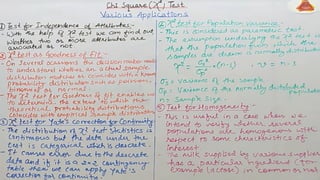 Chi Square (χ²) Test
Various Applications
1) Test for Independence of Attributes:-
With the help of χ² test we can find out
whether two or more attributes are
associated or not
2) χ² test as Goodness of Fit:-
On several occasions the decision maker needs
to understand whether an actual sample
distribution matches or coincides with a known
probability distribution such as
binomial or normal.
The χ² test for Goodness of fit enables us
to determine the extent to which
theoretical probability distributions
coincides with empirical sample distribution
3) χ² test for Yate's correction for Continuity:-
The distribution of χ² test statistics is
continuous but the data under the
test is categorical which is discrete.
It causes error due to the discrete
data and if it is a 2×2 contingency
table then we can apply Yate's
correction for continuity.
4) χ² test for Population Variance:-
This is considered as parametric test
The assumption underlying the χ² test is
that the population from which the
samples are drawn is normally distributed
(n-1)
Variance of the sample
Variance of the normally distributed
n = Sample Size.
5) Test for Homogeneity:-
This is useful in case when we
intend to verify whether several
populations are homogeneous with
respect to some characteristics of
interest
The milk supplied by various suppliers
has a particular ingredient (for
example lactose) in common or not